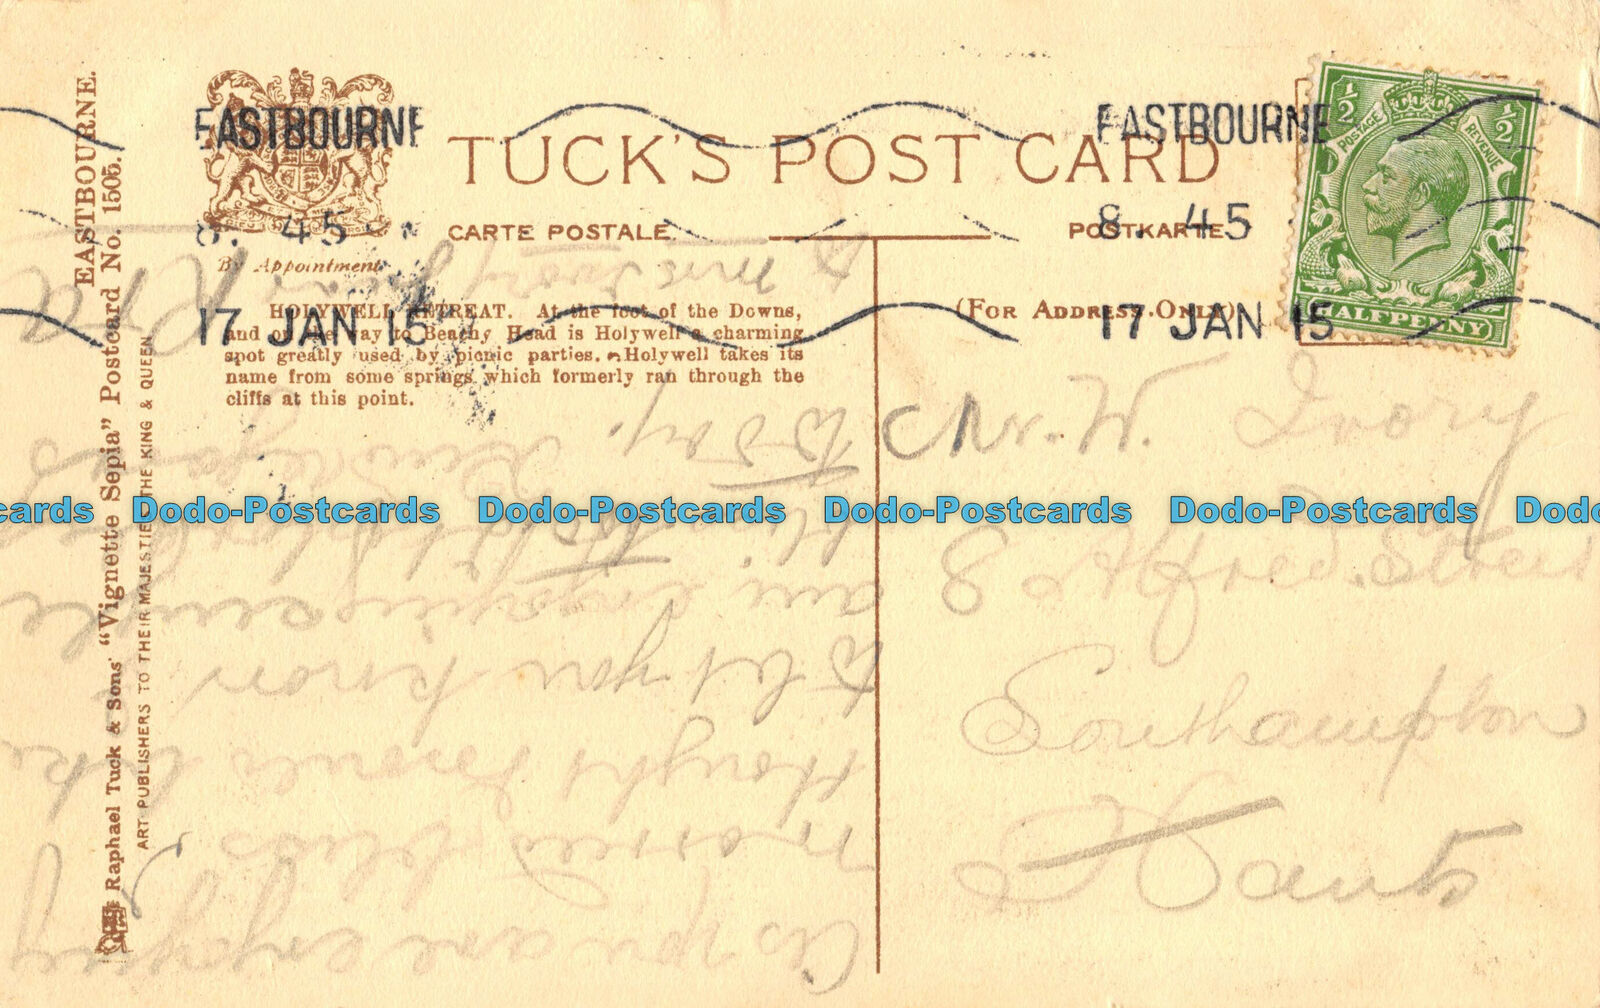 EASTBOURNE.
Raphael Tuck & Sons' "Vignette Sepia" Postcard No. 1505.
ART PUBLISHERS TO THEIR MAJESTIES THE KING & QUEEN
EASTBOURNE
8. 45
17 JAN 15
By Appointment
TUCK'S POST CARD
CARTE POSTALE.
POSTKARTE
EASTBOURNE
8. 45
17 JAN 15
½ ½
POSTAGE REVENUE
HALFPENNY
HOLYWELL RETREAT. At the foot of the Downs,
and on the way to Beachy Head is Holywell a charming
spot greatly used by picnic parties. Holywell takes its
name from some springs which formerly ran through the
cliffs at this point.
(FOR ADDRESS ONLY)
Mr. W. Ivory
8 Alfred Street
Southampton
Hants
As you are enjoying
married bliss,
thought I would like
to let you know
am enjoying single
to day.
Mrs Ivory
Dodo-Postcards Dodo-Postcards Dodo-Postcards Dodo-Postcards